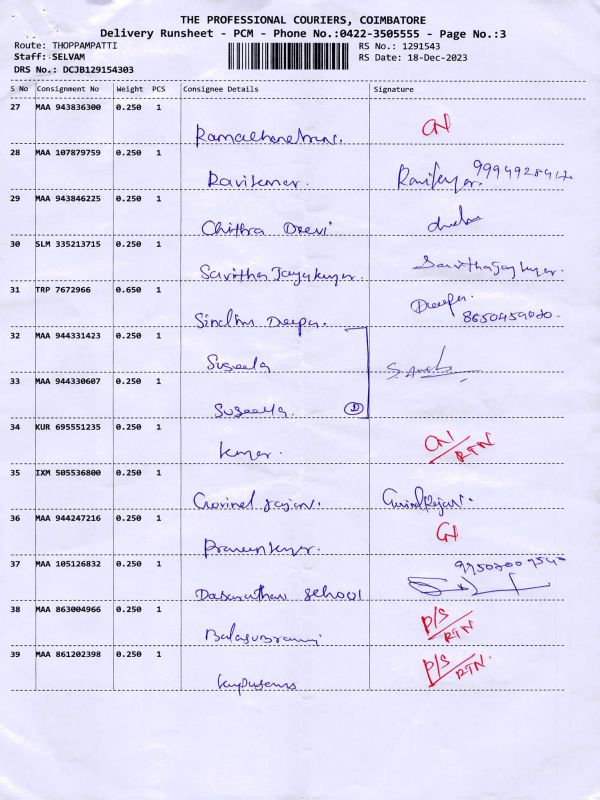 THE PROFESSIONAL COURIERS, COIMBATORE
Delivery Runsheet - PCM - Phone No.:0422-3505555 - Page No.:3
Route: THOPPAMPATTI
RS No.: 1291543
Staff: SELVAM
RS Date: 18-Dec-2023
DRS No.: DCJB129154303
S No Consignment No Weight PCS Consignee Details Signature
27 MAA 943836300 0.250 1
CN
28 MAA 107879759 0.250 1
Ravikumar.
29 MAA 943846225 0.250 1
Chithra Devi
30 SLM 335213715 0.250 1
Savitha Jayakumar Savithajaykumar.
31 TRP 7672966 0.650 1
Deepa.
8650459020.
Sindhu Deepa.
32 MAA 944331423 0.250 1
Suseela
33 MAA 944330607 0.250 1
Suseela. D
34 KUR 695551235 0.250 1
CN/RTN
Kumar.
35 IXM 505536800 0.250 1
Govind rajan. GovindRajan.
36 MAA 944247216 0.250 1
CN
Praveenkumar.
37 MAA 105126832 0.250 1
school
38 MAA 863004966 0.250 1
P/S RTN
39 MAA 861202398 0.250 1
P/S RTN.